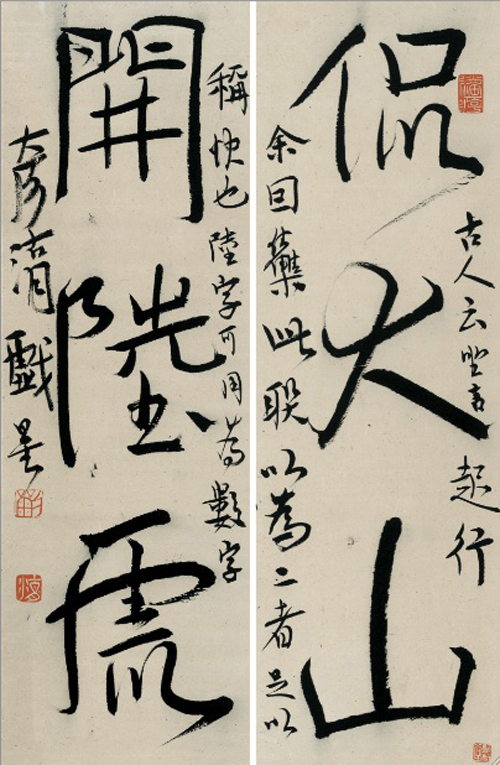 侃大山
古人云坐言起行
余因集此聯以為二者足以
開陸虎
稱快也陸字可用為數字
戲墨